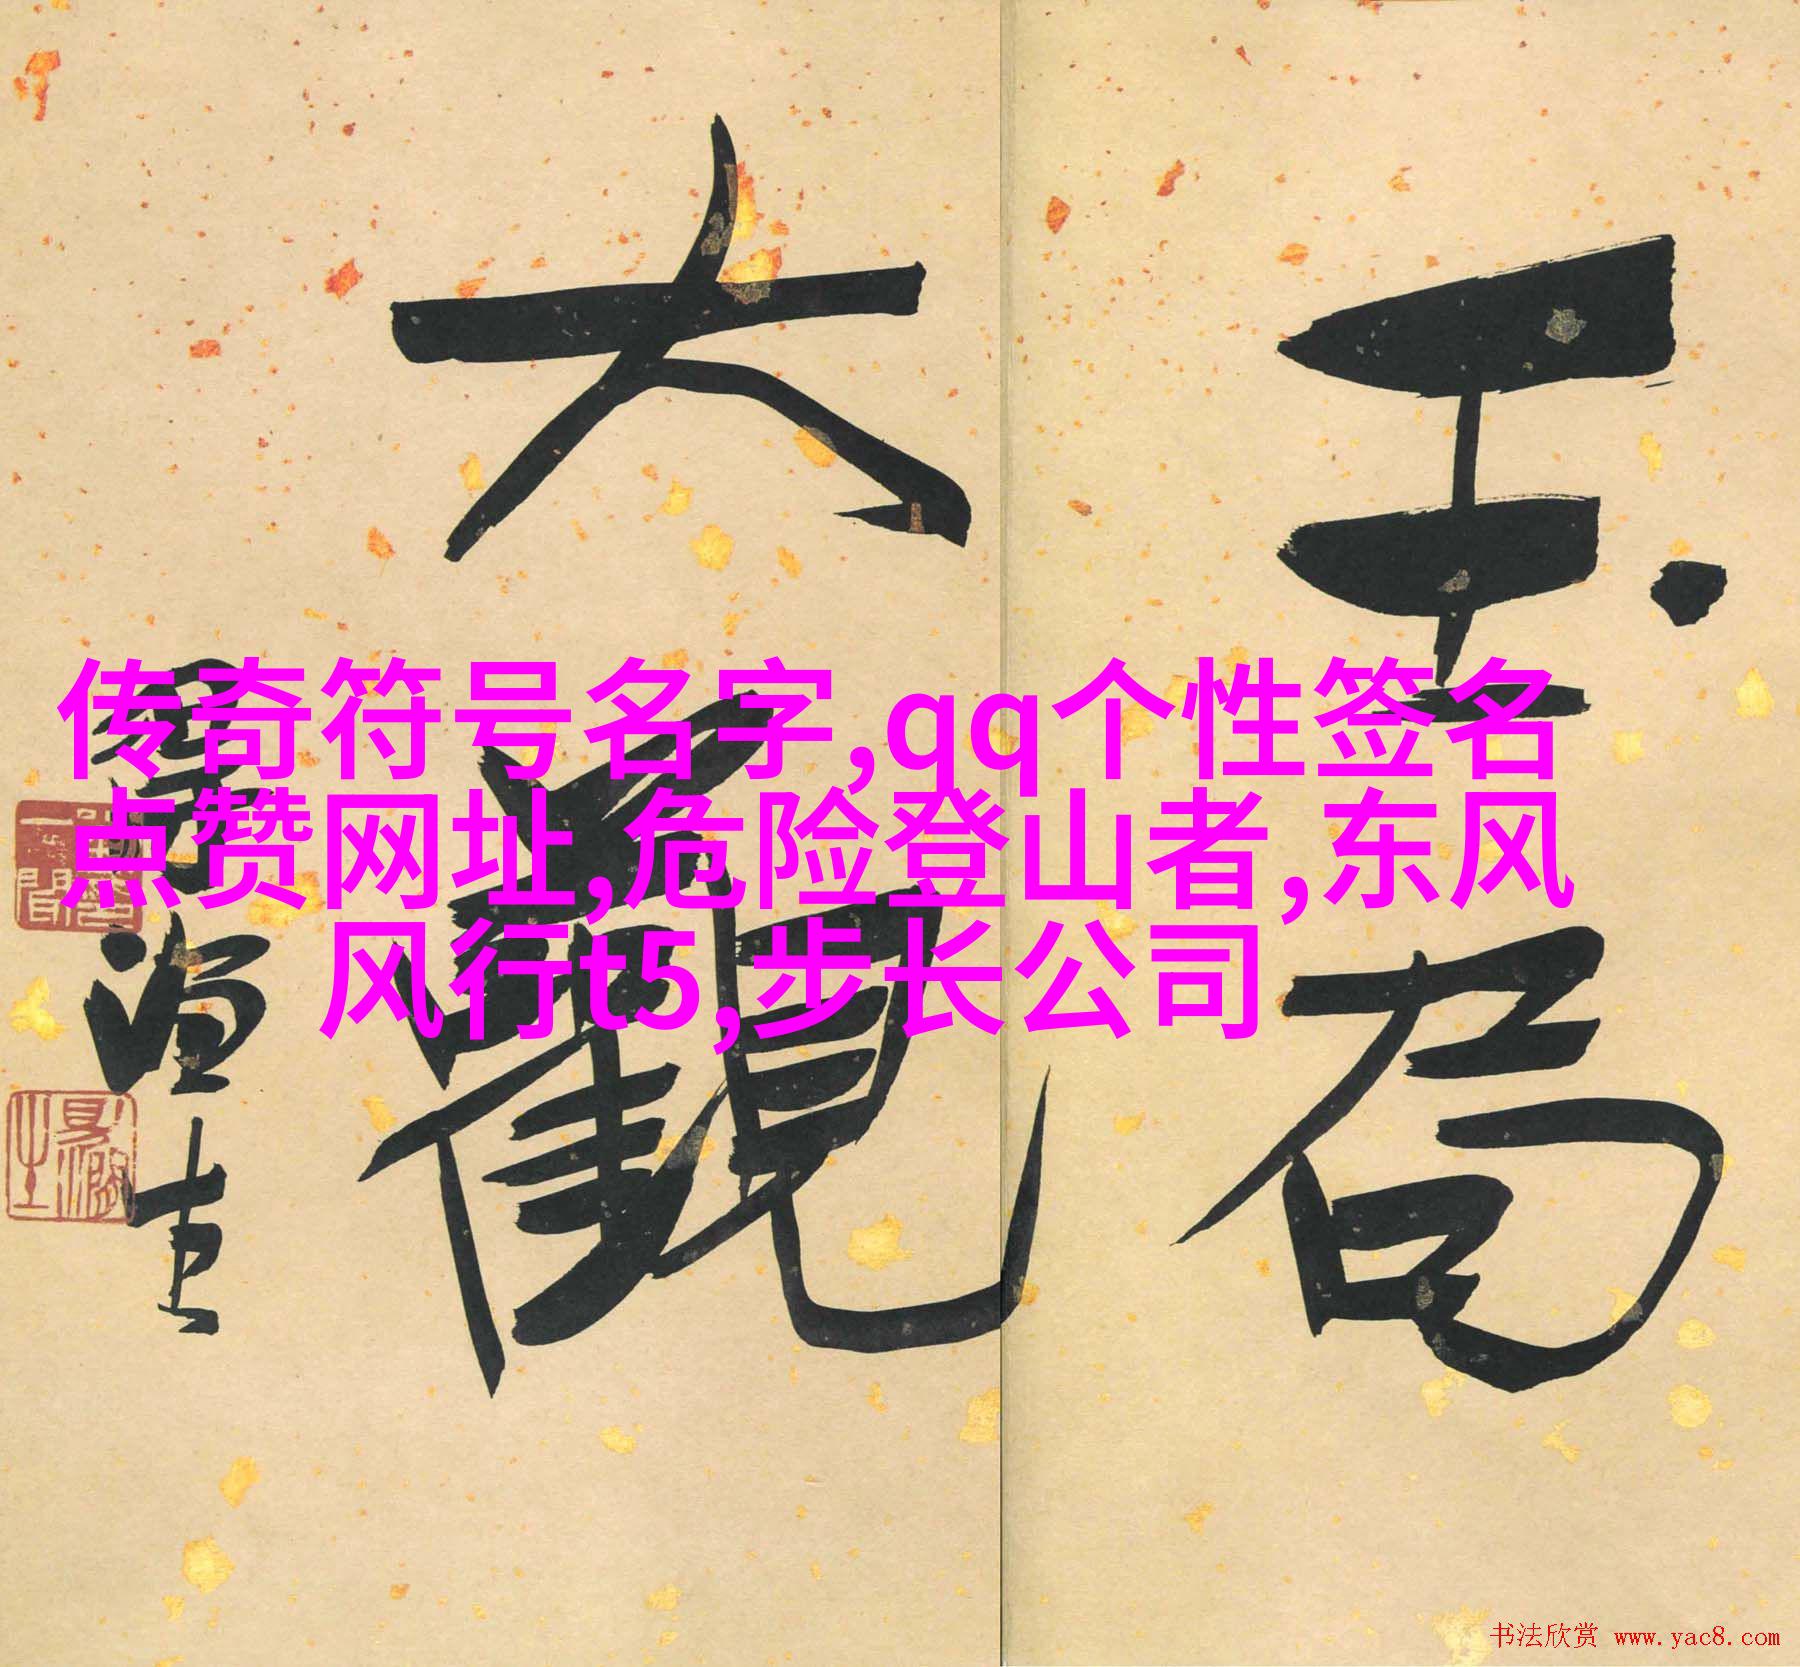 玉局
大觀
传奇符号名字,qq个性签名
点赞网址,危险登山者,东风
风行t5,步长公司
书法欣赏 www.yac8.com